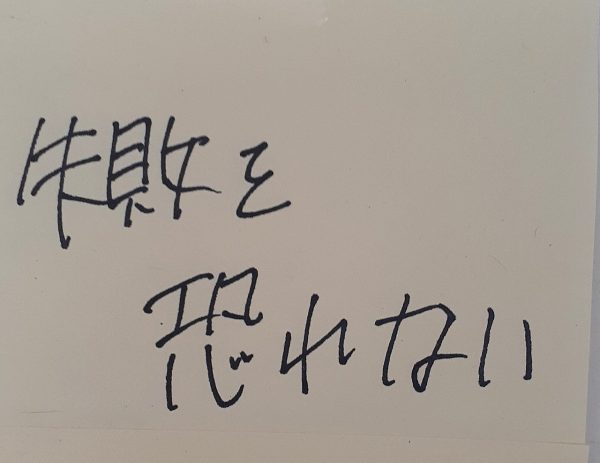 失敗を
恐れない